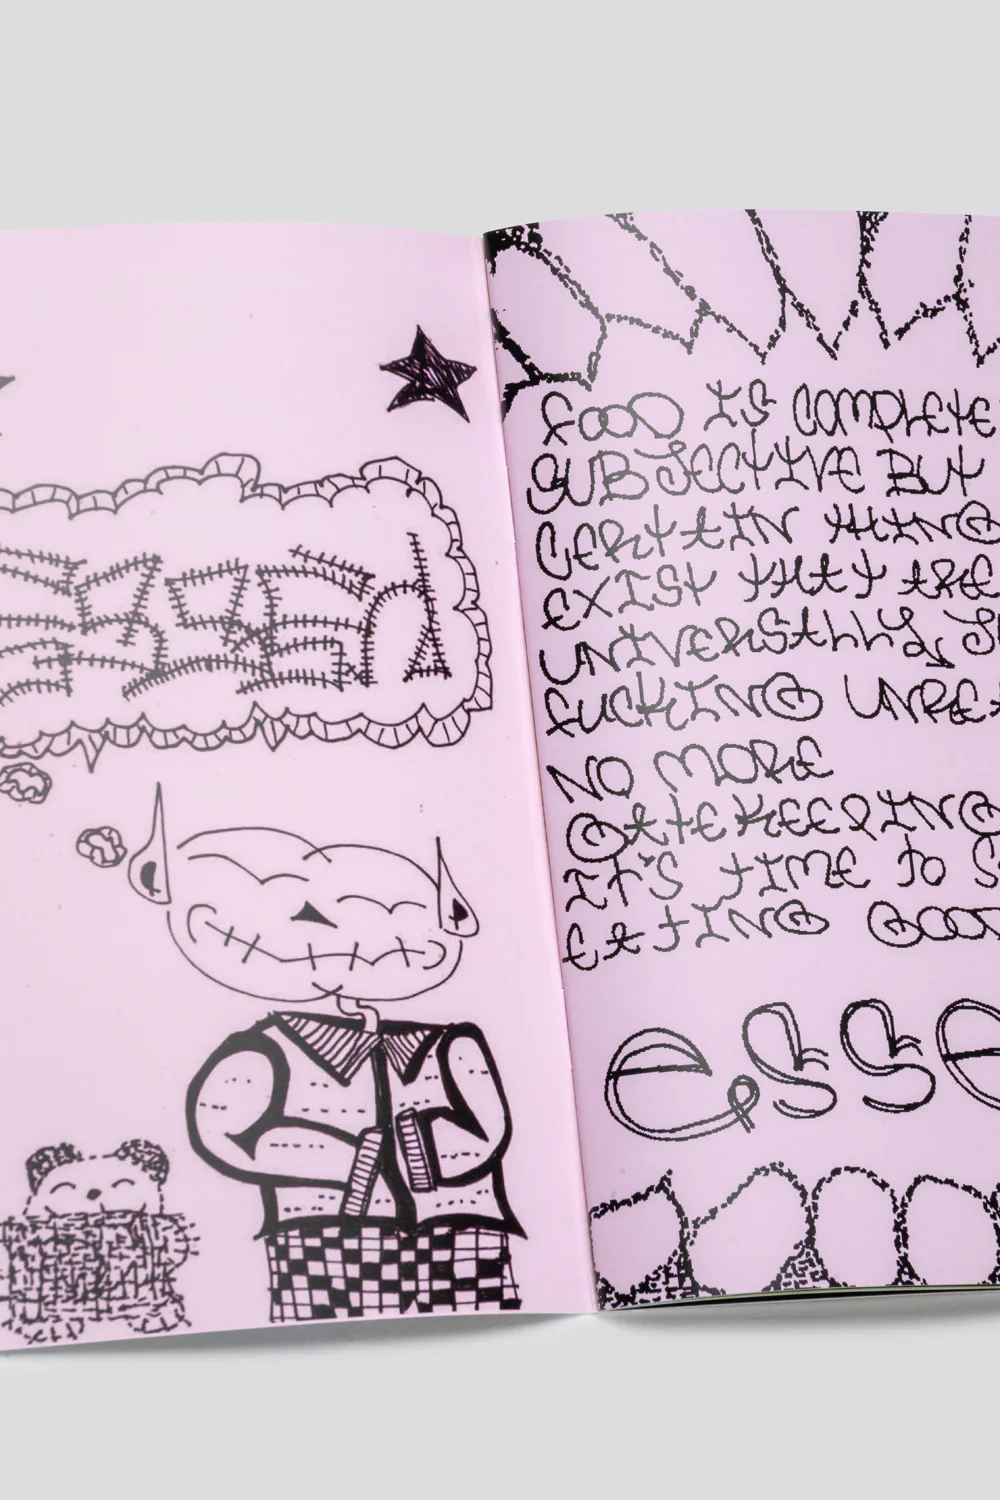 FOOD IS COMPLETE
SUBJECTIVE BUT
CERTAIN THING
EXIST THAT ARE
UNIVERSALLY, JU
FUCKING UNREA
NO MORE
GATEKEEPING
IT'S TIME TO S
EATING GOOD
esse